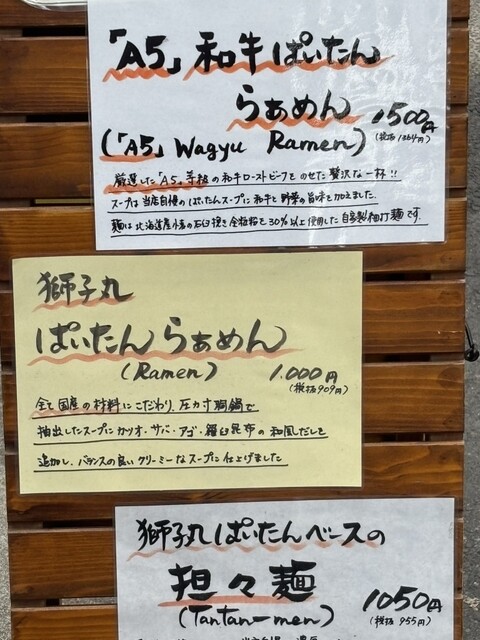 「A5」和牛ぱいたん
らぁめん 1500円
(税抜1364円)
(「A5」Wagyu Ramen)
厳選した「A5」等級の和牛ローストビーフをのせた贅沢な一杯!!
スープは当店自慢のぱいたんスープに和牛と野菜の旨味を加えました。
麺は北海道産小麦の石臼挽き全粒粉を30%以上使用した自家製細打麺です。
獅子丸
ぱいたんらぁめん
(Ramen) 1.000円
(税抜909円)
全て国産の材料にこだわり、圧力寸胴鍋で
抽出したスープにカツオ・サバ・アゴ・羅臼昆布の和風だしを
追加し、バランスの良いクリーミーなスープに仕上げました
獅子丸ぱいたんベースの
担々麺
(Tantan-men) 1050円
(税抜955円)